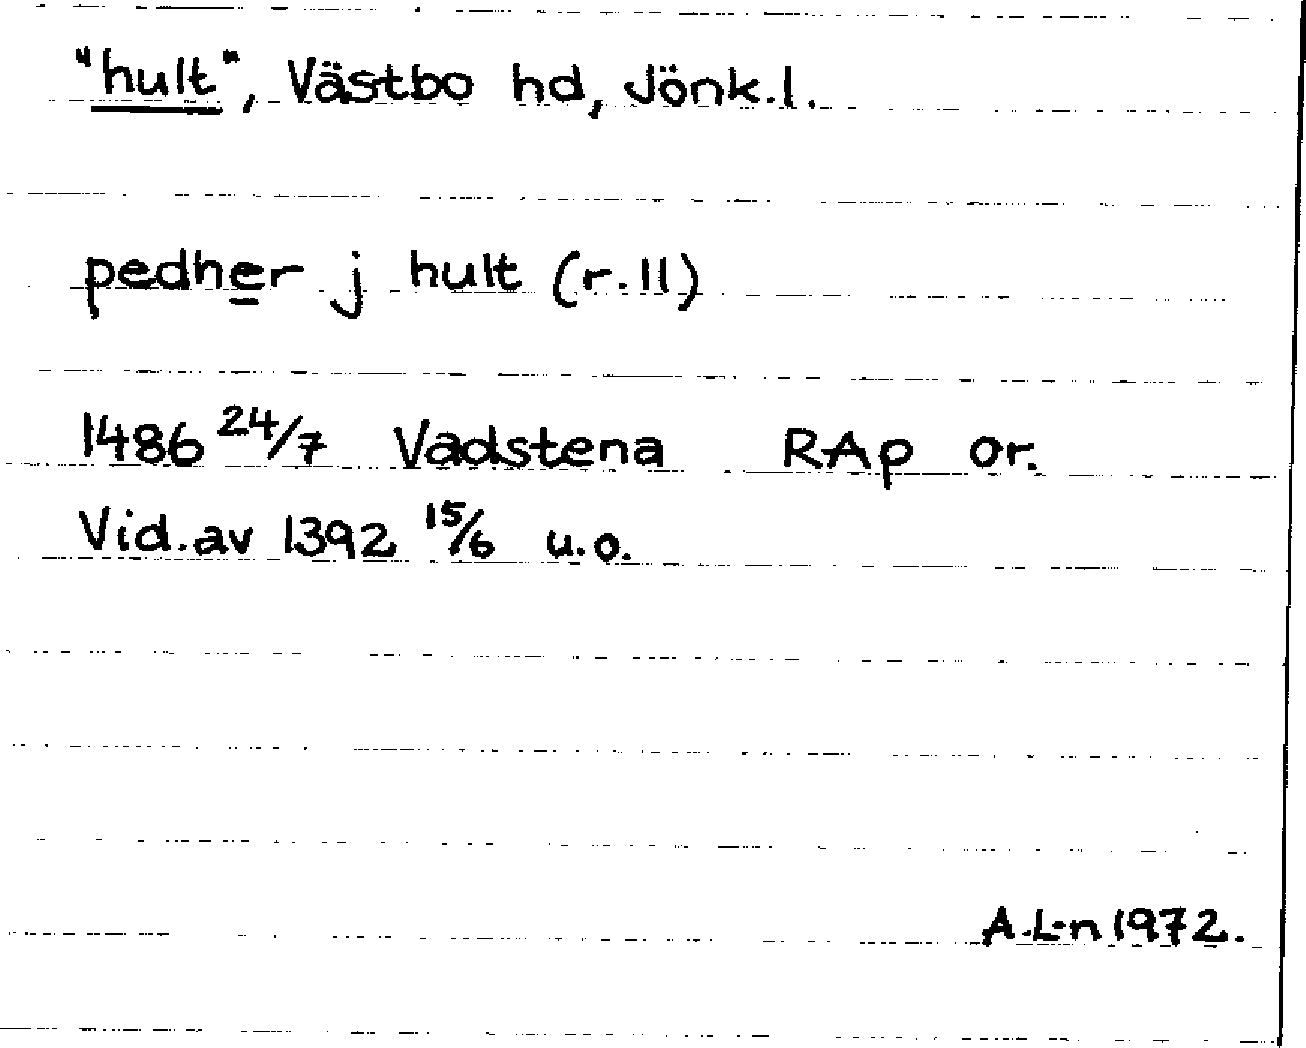 "hult", Västbo hd, Jönk.l.
pedher j hult (r.11)
1486 24/7 Vadstena RAp or.
Vid.av 1392 15/6 u.o.
A.L-n 1972.